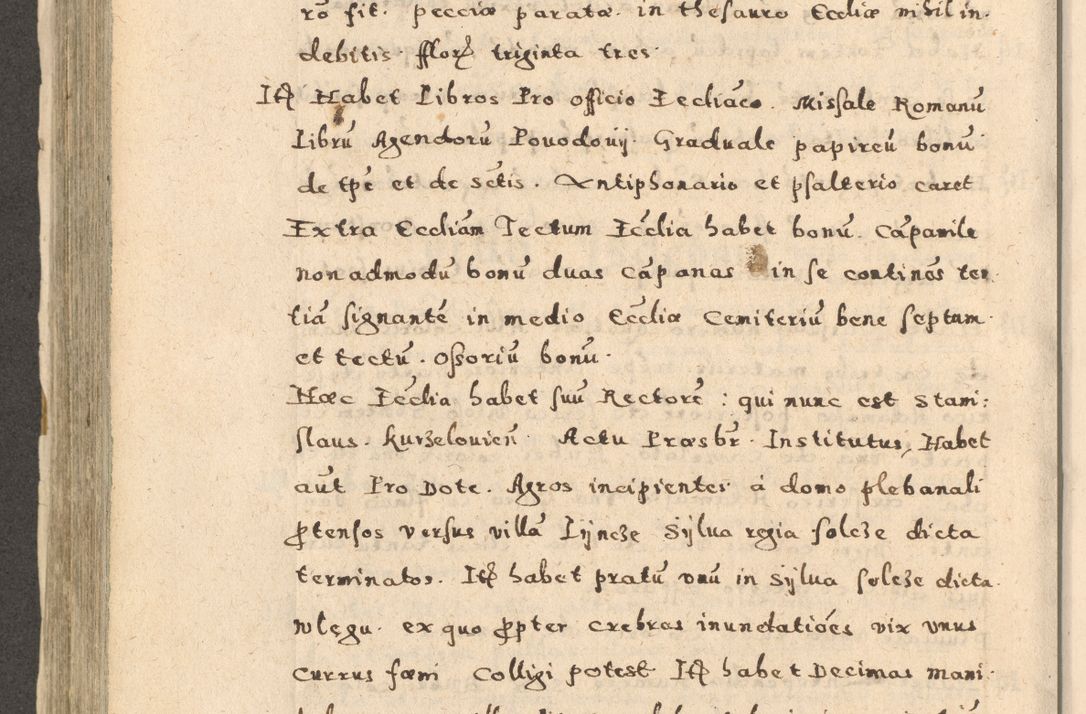 rõ fit. pecciæ paratæ. in thesauro Ecclīæ nihil in.
debitis. fflorꝭ triginta tres.
Itꝭ Habet Libros Pro officio Ecclīaco. Missale Romanū
Librū Agendorū Povodovij. Graduale papireū bonū
de tp̄e et de sc̄tis. Antiphonario et psalterio caret
Extra Ecclīam Tectum Ecc̄lia habet bonū. Cāpanile
non admodū bonū duas Cāpanas in se continēs ter
tiā signantē in medio Ecc̄liæ Cemiteriū bene septum.
et tectū. Ossoriū bonū.
Hæc Ecc̄lia habet suū Rectorē: qui nunc est Stani:
slaus. Kurzelovien̄. Actu Præsbr̄. Institutus, Habet
aūt Pro Dote. Agros incipientes à domo plebanali
ꝓtensos versus villā Lÿncze Sÿlva regia solcze dicta
terminatos. Itꝭ habet pratū vnū in Sÿlva solcze dicta.
wlęgu. ex quo ꝓpter crebras inundatiōes vix vnus
currus fœni Colligi potest. Itꝭ habet Decimas mani.